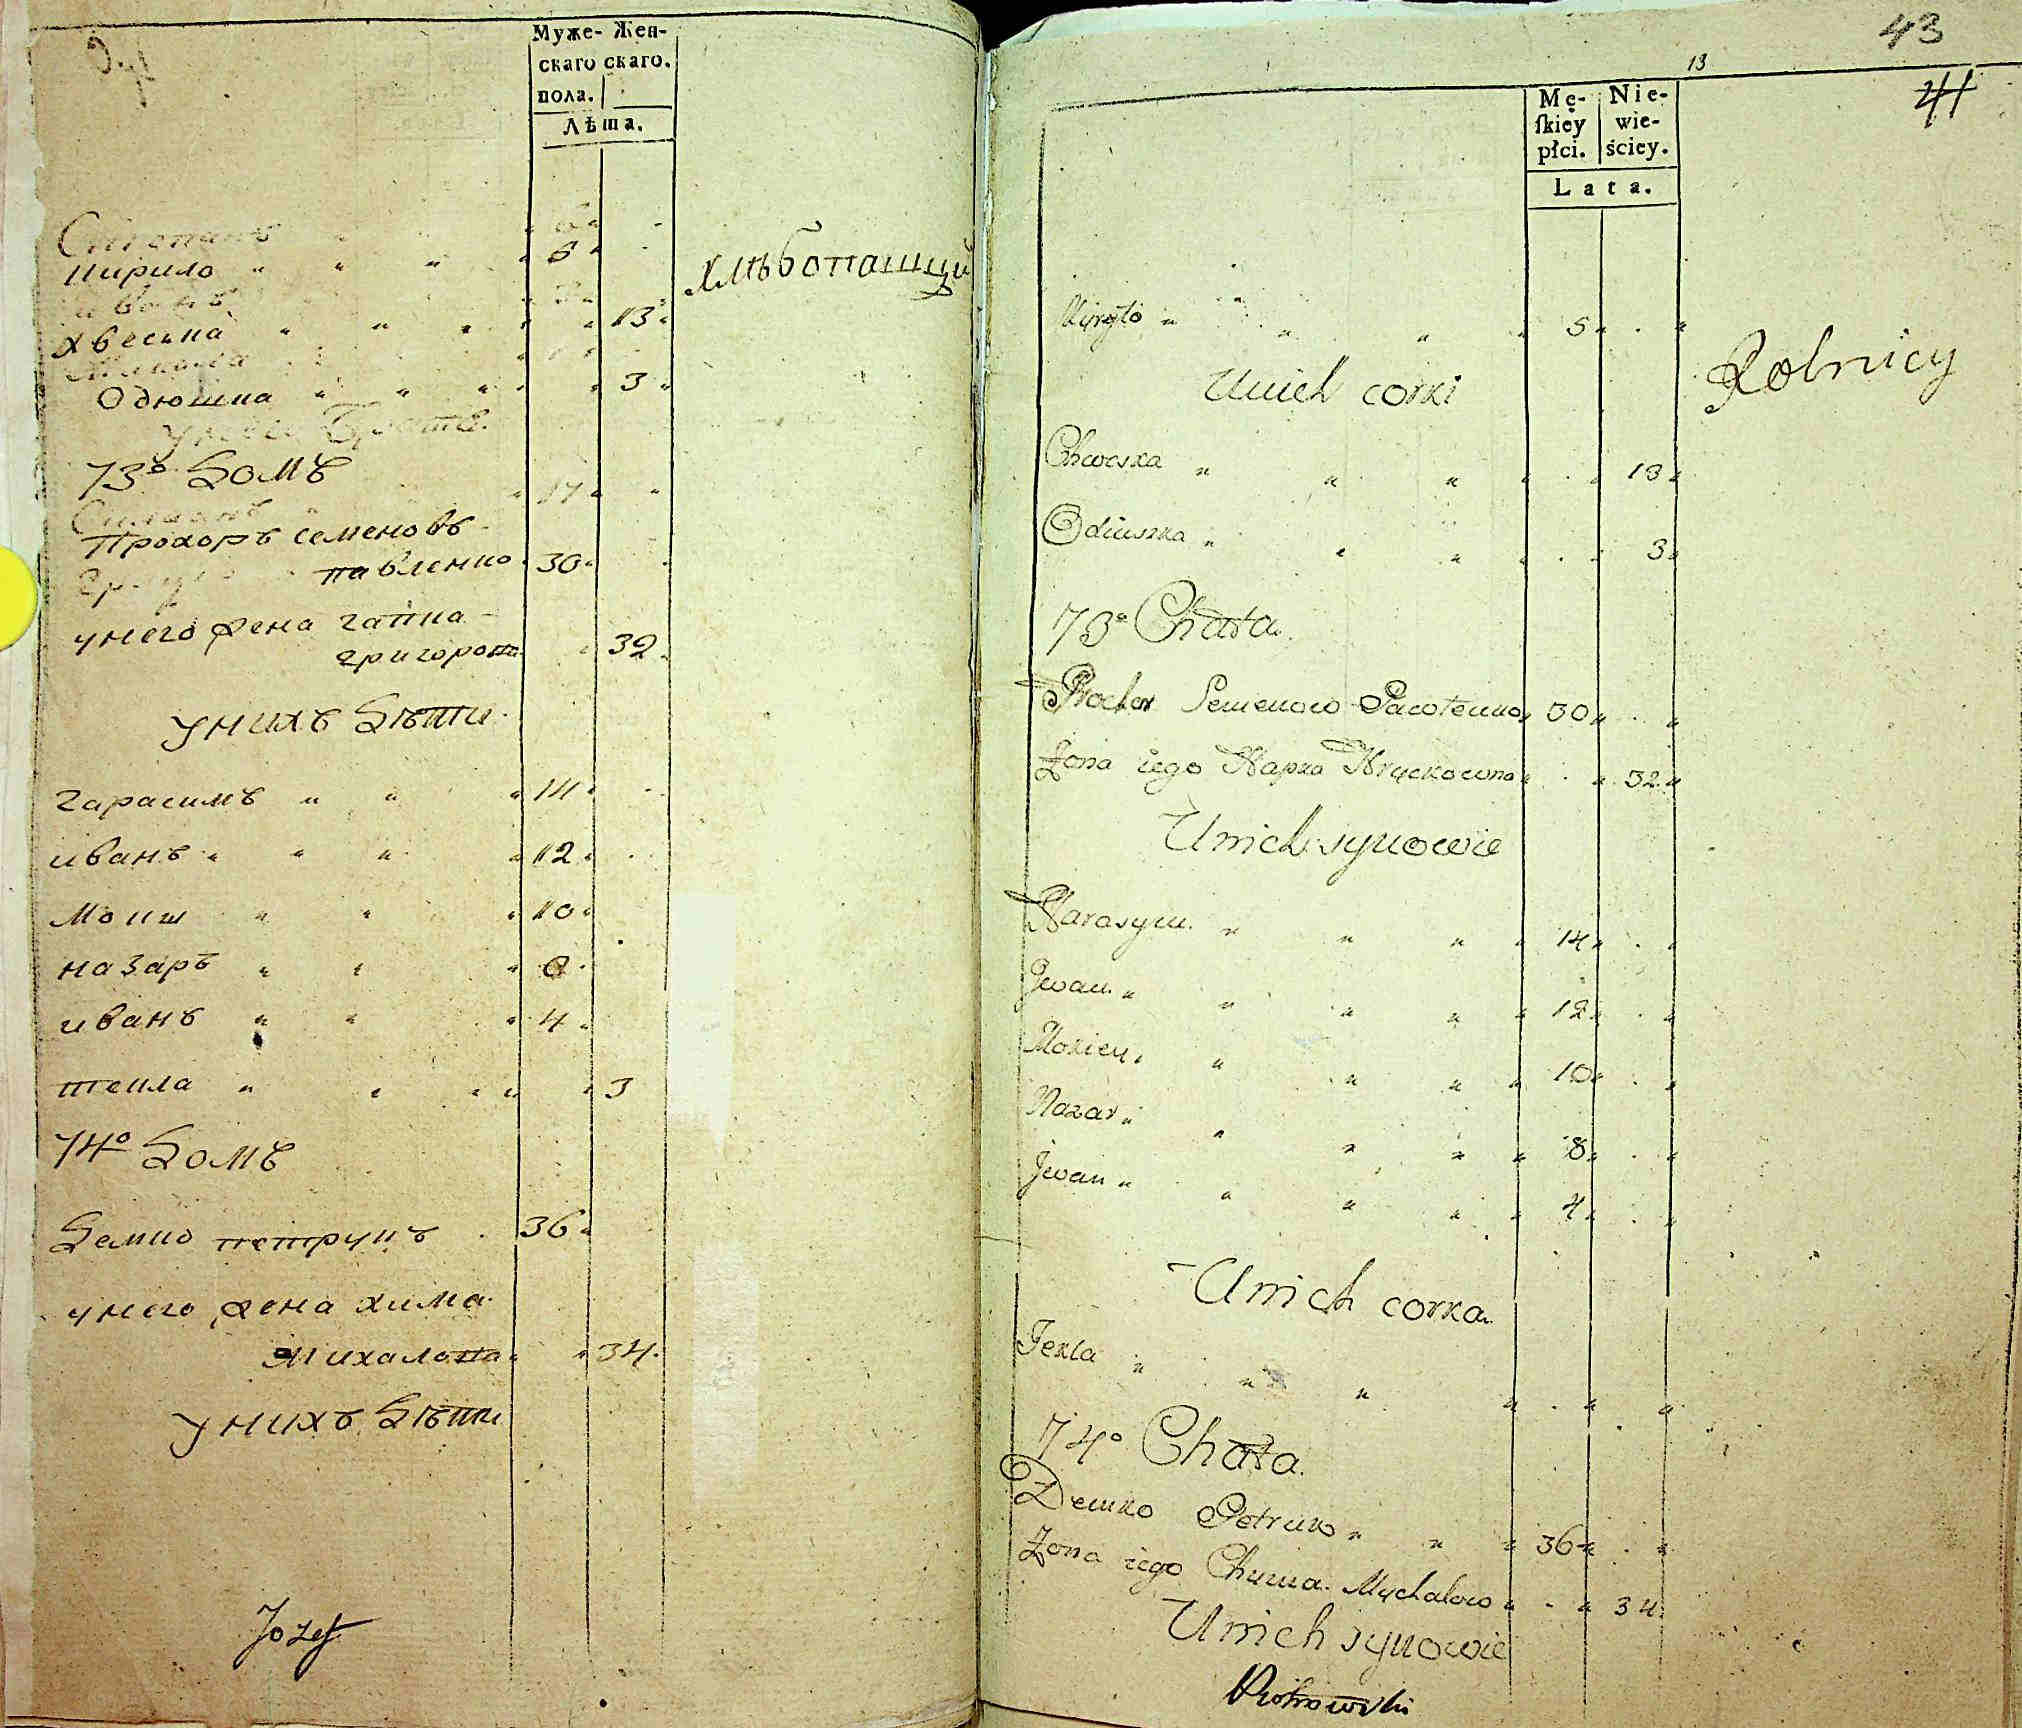 Муже- Жен-
скаго скаго.
пола.
Лѣта.
Степанъ
кирило 5
иванъ
хвеська 13
Микола
Одюшка 3
хлѣбопашцы
73º Домъ
17
Прохоръ семеновъ
павленко 30
унего жена гапка
григорова 32
унихъ дѣти
гарасимъ 14
иванъ 12
Моиш 10
назаръ 8
иванъ 4
текла 3
74º Домъ
Демко петрукъ 36
унего жена хима
михалова 34
унихъ дѣти
Jozef
43
13
41
Mę- Nie-
ſkiey wie-
płci. ściey.
Lata.
Kyryło 5
Unich corki
Rolnicy
Chweska 13
Odiuszka 3
73º Chata
Prochor Semenow Pawłenko 30
Zona iego Hapka Hryckowna 32
Unich synowie
Harasym 14
Jwan 12
Mokiey 10
Nazar 8
Jwan 4
Unich corka
Tekla
74º Chata
Demko Petruk 36
Zona iego Chyma Mychalow 34
Unich synowie
Piotrowski